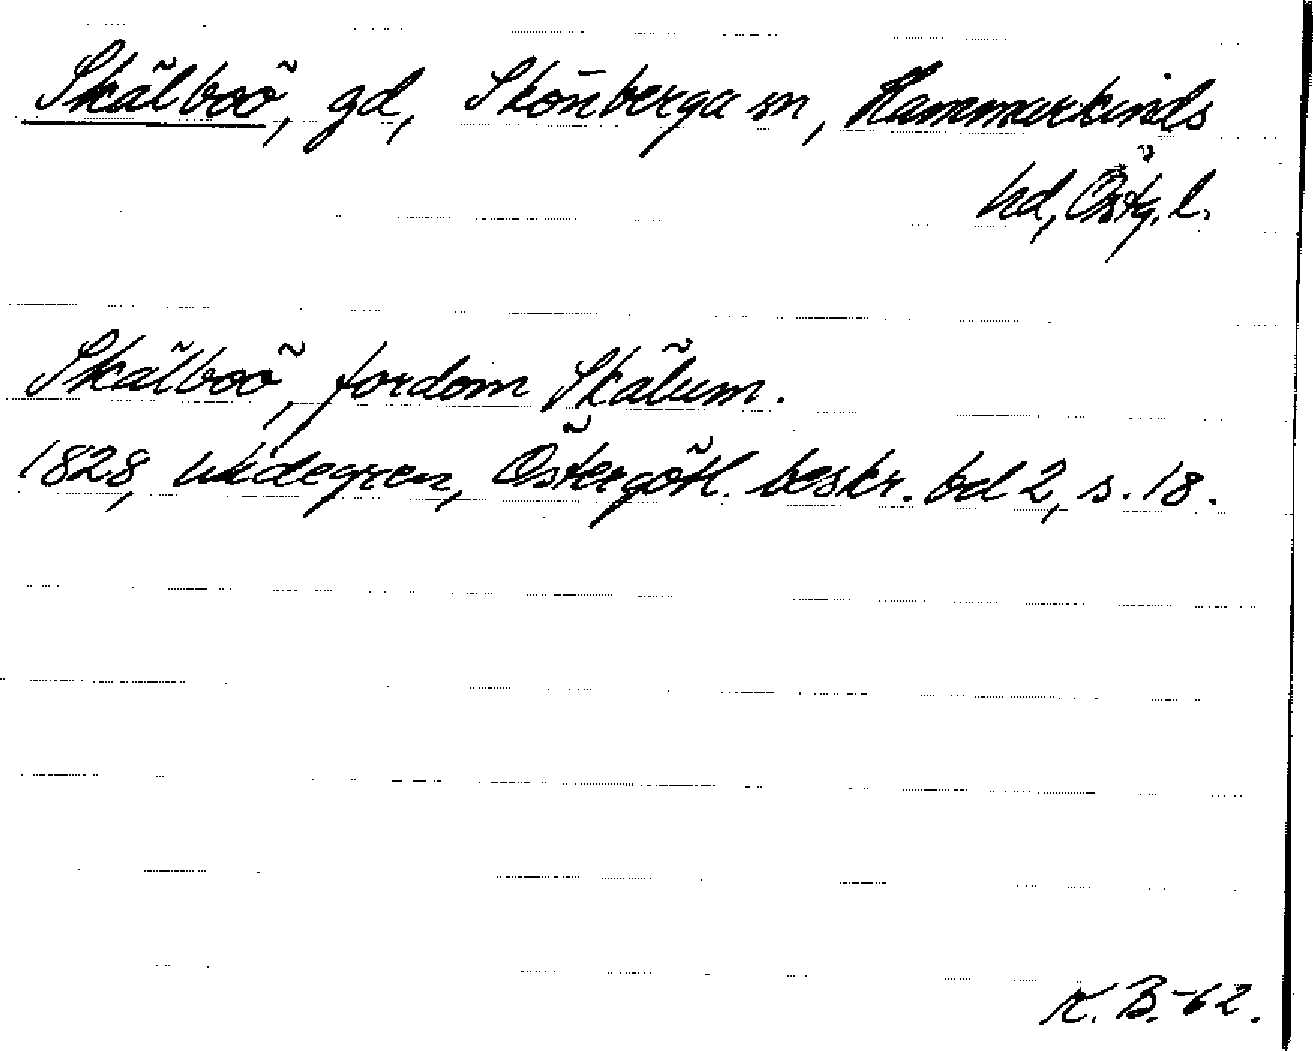 Skälboö, gd, Skönberga sn, Hammarkinds
hd, Östg. l.
Skälboö, fordom Skälum.
1828, Widegren, Östergötl. beskr. bd 2, s. 18.
K. B. -62.